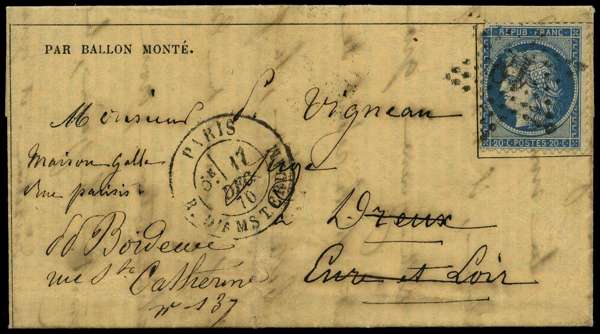 PAR BALLON MONTÉ.
REPUB. FRANC.
20 C. POSTES 20 C.
Monsieur Vigneau
PARIS
17
DEC.
70
R. D'AMSTERDAM
Maison Galle
rue parisis
Juge
à Dreux
Eure et Loir
Bordeaux
rue Ste Catherine
n° 137